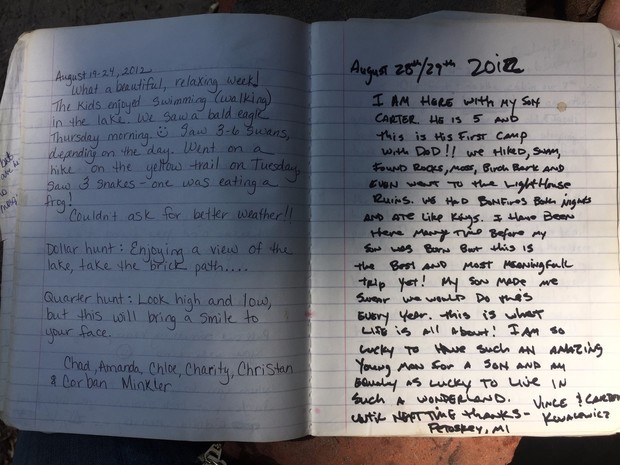 August 19-24, 2012
What a beautiful, relaxing week!
The kids enjoyed swimming (walking)
in the lake. We saw a bald eagle
Thursday morning. ☺ Saw 3-6 swans,
depending on the day. Went on a
hike on the yellow trail on Tuesday,
saw 3 snakes - one was eating a
frog!
Couldnt ask for better weather!!
Dollar hunt: Enjoying a view of the
lake, take the brick path....
Quarter hunt: Look high and low,
but this will bring a smile to
your face.
Chad, Amanda, Chloe, Charity, Christan
& Corban Minkler
August 28th/29th 2012
I AM HERE WITH MY SON
CARTER HE IS 5 AND
THIS IS HIS FIRST CAMP
WITH DAD!! WE HIKED, SWAM,
FOUND ROCKS, MOSS, BIRCH BARK AND
EVEN WENT TO THE LIGHTHOUSE
RUINS. WE HAD BONFIRES BOTH NIGHTS
AND ATE LIKE KINGS. I HAVE BEEN
HERE MANY TIME BEFORE MY
SON WAS BORN BUT THIS IS
THE BEST AND MOST MEANINGFULL
TRIP YET! MY SON MADE ME
SWEAR WE WOULD DO THIS
EVERY YEAR. THIS IS WHAT
LIFE IS ALL ABOUT! I AM SO
LUCKY TO HAVE SUCH AN AMAZING
YOUNG MAN FOR A SON AND AM
EQUALY AS LUCKY TO LIVE IN
SUCH A WONDERLAND. VINCE & CARTER
UNTIL NEXT TIME THANKS- KOWALEWICZ
PETOSKEY, MI